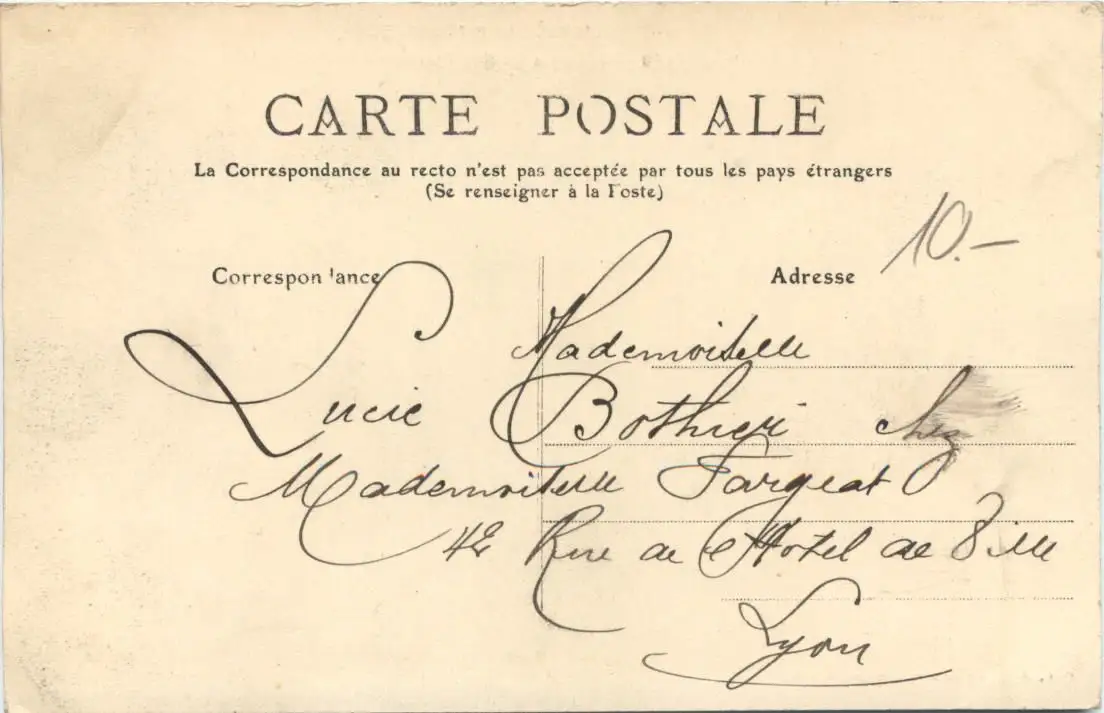 CARTE POSTALE
La Correspondance au recto n'est pas acceptée par tous les pays étrangers
(Se renseigner à la Poste)
10.-
Correspondance
Adresse
Mademoiselle
Lucie Bothier chez
Mademoiselle Fargeat
42 Rue de l'Hotel de Ville
Lyon